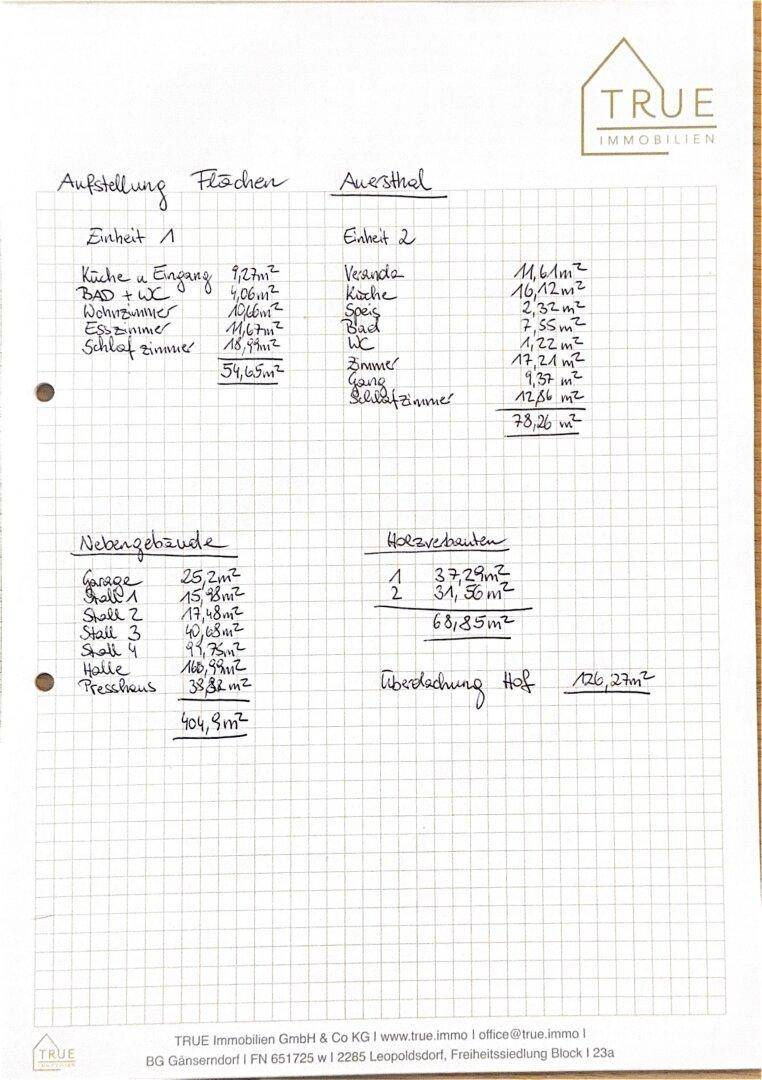 TRUE
IMMOBILIEN
Aufstellung Flächen Auersthal
Einheit 1
Küche u Eingang 9,27m²
BAD + WC 4,06m²
Wohnzimmer 10,66m²
Esszimmer 11,67m²
Schlafzimmer 18,99m²
54,65m²
Einheit 2
Veranda 11,61m²
Küche 16,12m²
Speis 2,32m²
Bad 7,55m²
WC 1,22m²
Zimmer 17,21m²
Gang 9,37 m²
Schlafzimmer 12,86 m²
78,26 m²
Nebengebäude
Garage 25,2m²
Stall 1 15,98m²
Stall 2 17,48m²
Stall 3 40,68m²
Stall 4 99,75m²
Halle 166,99m²
Presshaus 38,82m²
404,9m²
Holzverbauten
1 37,29m²
2 31,56m²
68,85m²
Überdachung Hof 126,27m²
TRUE
IMMOBILIEN
TRUE Immobilien GmbH & Co KG I www.true.immo I office@true.immo I
BG Gänserndorf I FN 651725 w I 2285 Leopoldsdorf, Freiheitssiedlung Block I 23a